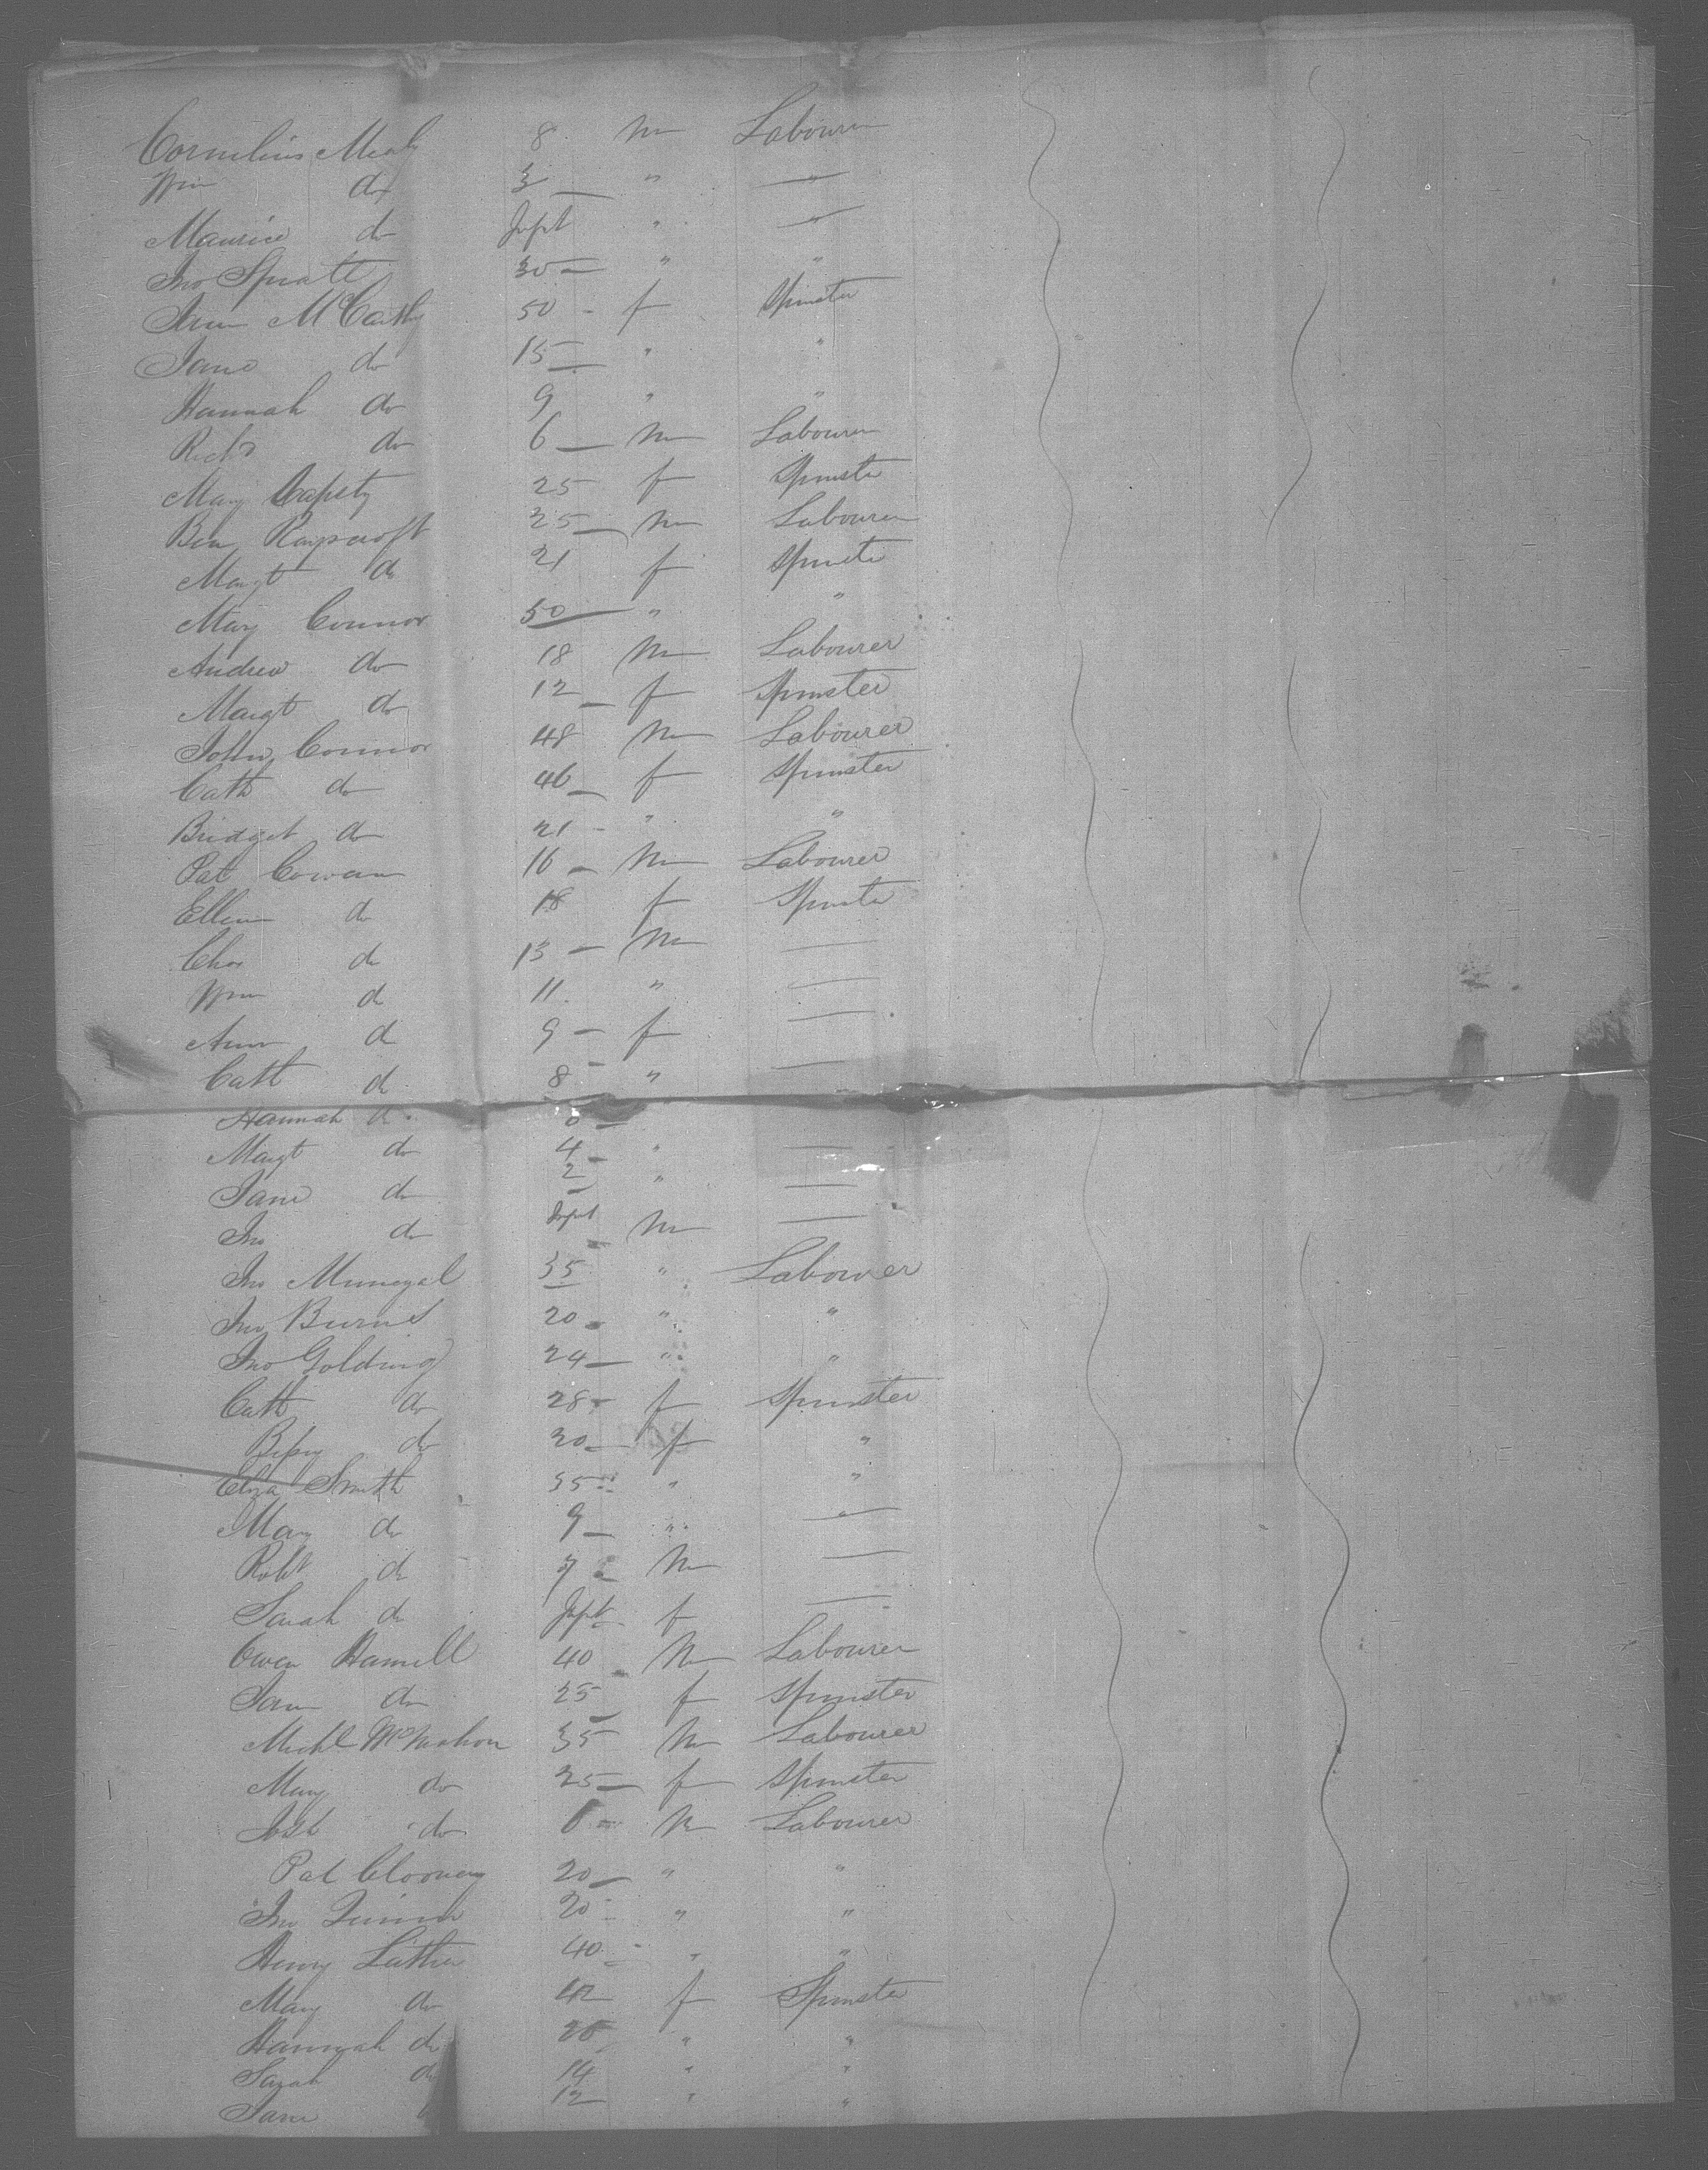 Cornelius Mealy 8 m Labourer
Wm do 3 " "
Maurice do Inft " "
Jno Spratt 30 " "
McCarthy 50 f Spinster
Jane do 15 " "
Hannah do 9 " "
Richd do 6 m Labourer
Mary 25 f Spinster
Ben Roycroft 25 m Labourer
Margt do 21 f Spinster
Mary Connor 50 " "
Andrew do 18 m Labourer
Margt do 12 f Spinster
John Connor 48 m Labourer
Cath do 46 f Spinster
Bridget do 21 " "
Pat Cowan 16 m Labourer
Ellen do 18 f Spinster
Chas do 13 m —
Wm do 11 " —
Ann do 9 f —
Cath do 8 " —
Hannah do 6
Margt do 4 " —
Jane do 2 " —
Jno do Inft m —
Jno 35 " Labourer
Jno Burns 20 " "
Jno Golding 24 " "
Cath do 28 f Spinster
Bessy do 20 f "
Eliza Smith 35 " "
Mary do 9 " —
Robt do 7 m —
Sarah do Inft f —
Owen Hamill 40 m Labourer
Jane do 25 f Spinster
Michl McMahon 35 m Labourer
Mary do 25 f Spinster
do 6 m Labourer
Pat Clooney 20 " "
Jno 20 " "
Henry 40 " "
Mary do 42 f Spinster
Hannah do " "
Sarah do 14 " "
Jane 12 " "